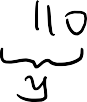 110
y